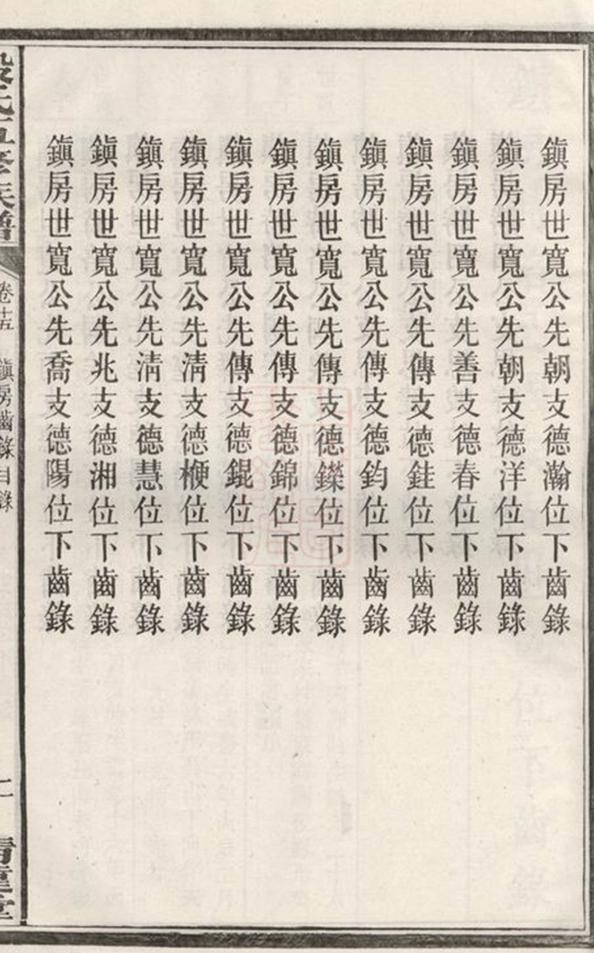 鎭房世寬公先朝支德瀚位下齒錄
鎭房世寬公先朝支德洋位下齒錄
鎭房世寬公先善支德春位下齒錄
鎭房世寬公先傳支德銈位下齒錄
鎭房世寬公先傳支德鈞位下齒錄
鎭房世寬公先傳支德鑅位下齒錄
鎭房世寬公先傳支德錦位下齒錄
鎭房世寬公先傳支德錕位下齒錄
鎭房世寬公先淸支德楩位下齒錄
鎭房世寬公先淸支德慧位下齒錄
鎭房世寬公先兆支德湘位下齒錄
鎭房世寬公先喬支德陽位下齒錄
氏五修族譜
卷十五 鎭房齒錄目錄
二